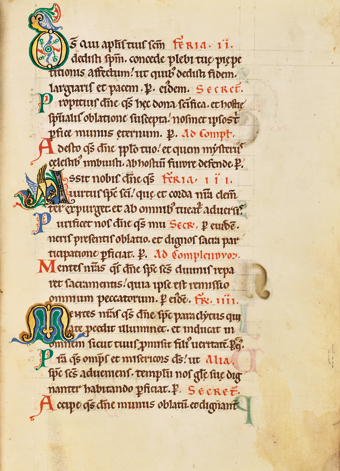 DS qui aplis tuis scm̄ FERIA · II ·
dedisti spm̄. concede plebi tuę pię pe
titionis affectum. ut quib; dedisti fidem.
largiaris et pacem. P. eiusdem. SECRET.
Propitius dn̄e qs̄ hęc dona scifica. et hostię
spiritalis oblatione suscepta. nosmet ipsos t
pfice munus eternum. P. AD COMPL.
Adesto qs̄ dn̄e pplo tuo. et quem mysteriis
celestib; imbuisti. ab hostiū furore defende. P.
Assit nobis dn̄e qs̄ FERIA · III ·
uirtus spc̄ sc̄i. quę et corda nr̄a clem̄
ter expurget. et ab omnib; tueat̄ aduersis.
Purificet nos dn̄e qs̄ mu SECR. P. eiusdē.
neris presentis oblatio. et dignos sacra par
ticipatione pficiat. P. AD COMPLENDUM.
Mentes nr̄as qs̄ dn̄e spc̄ sc̄s diuinis repa
ret sacramentis. quia ipse est remissio
omnium peccatorum. P. eiusdē. FR. IIII.
Mentes nr̄as qs̄ dn̄e spc̄ paraclytus qui
a te procedit illuminet. et inducat in
omnem sicut tuus pmisit filius ueritatē. P.
Pr̄a qs̄ omps̄ et misericors ds̄. ut ALIA.
spc̄ sc̄s adueniens. templū nos glę suę dig
nanter habitando pficiat. P. SECRET.
Accipe qs̄ dn̄e munus oblatū. et dignant̄